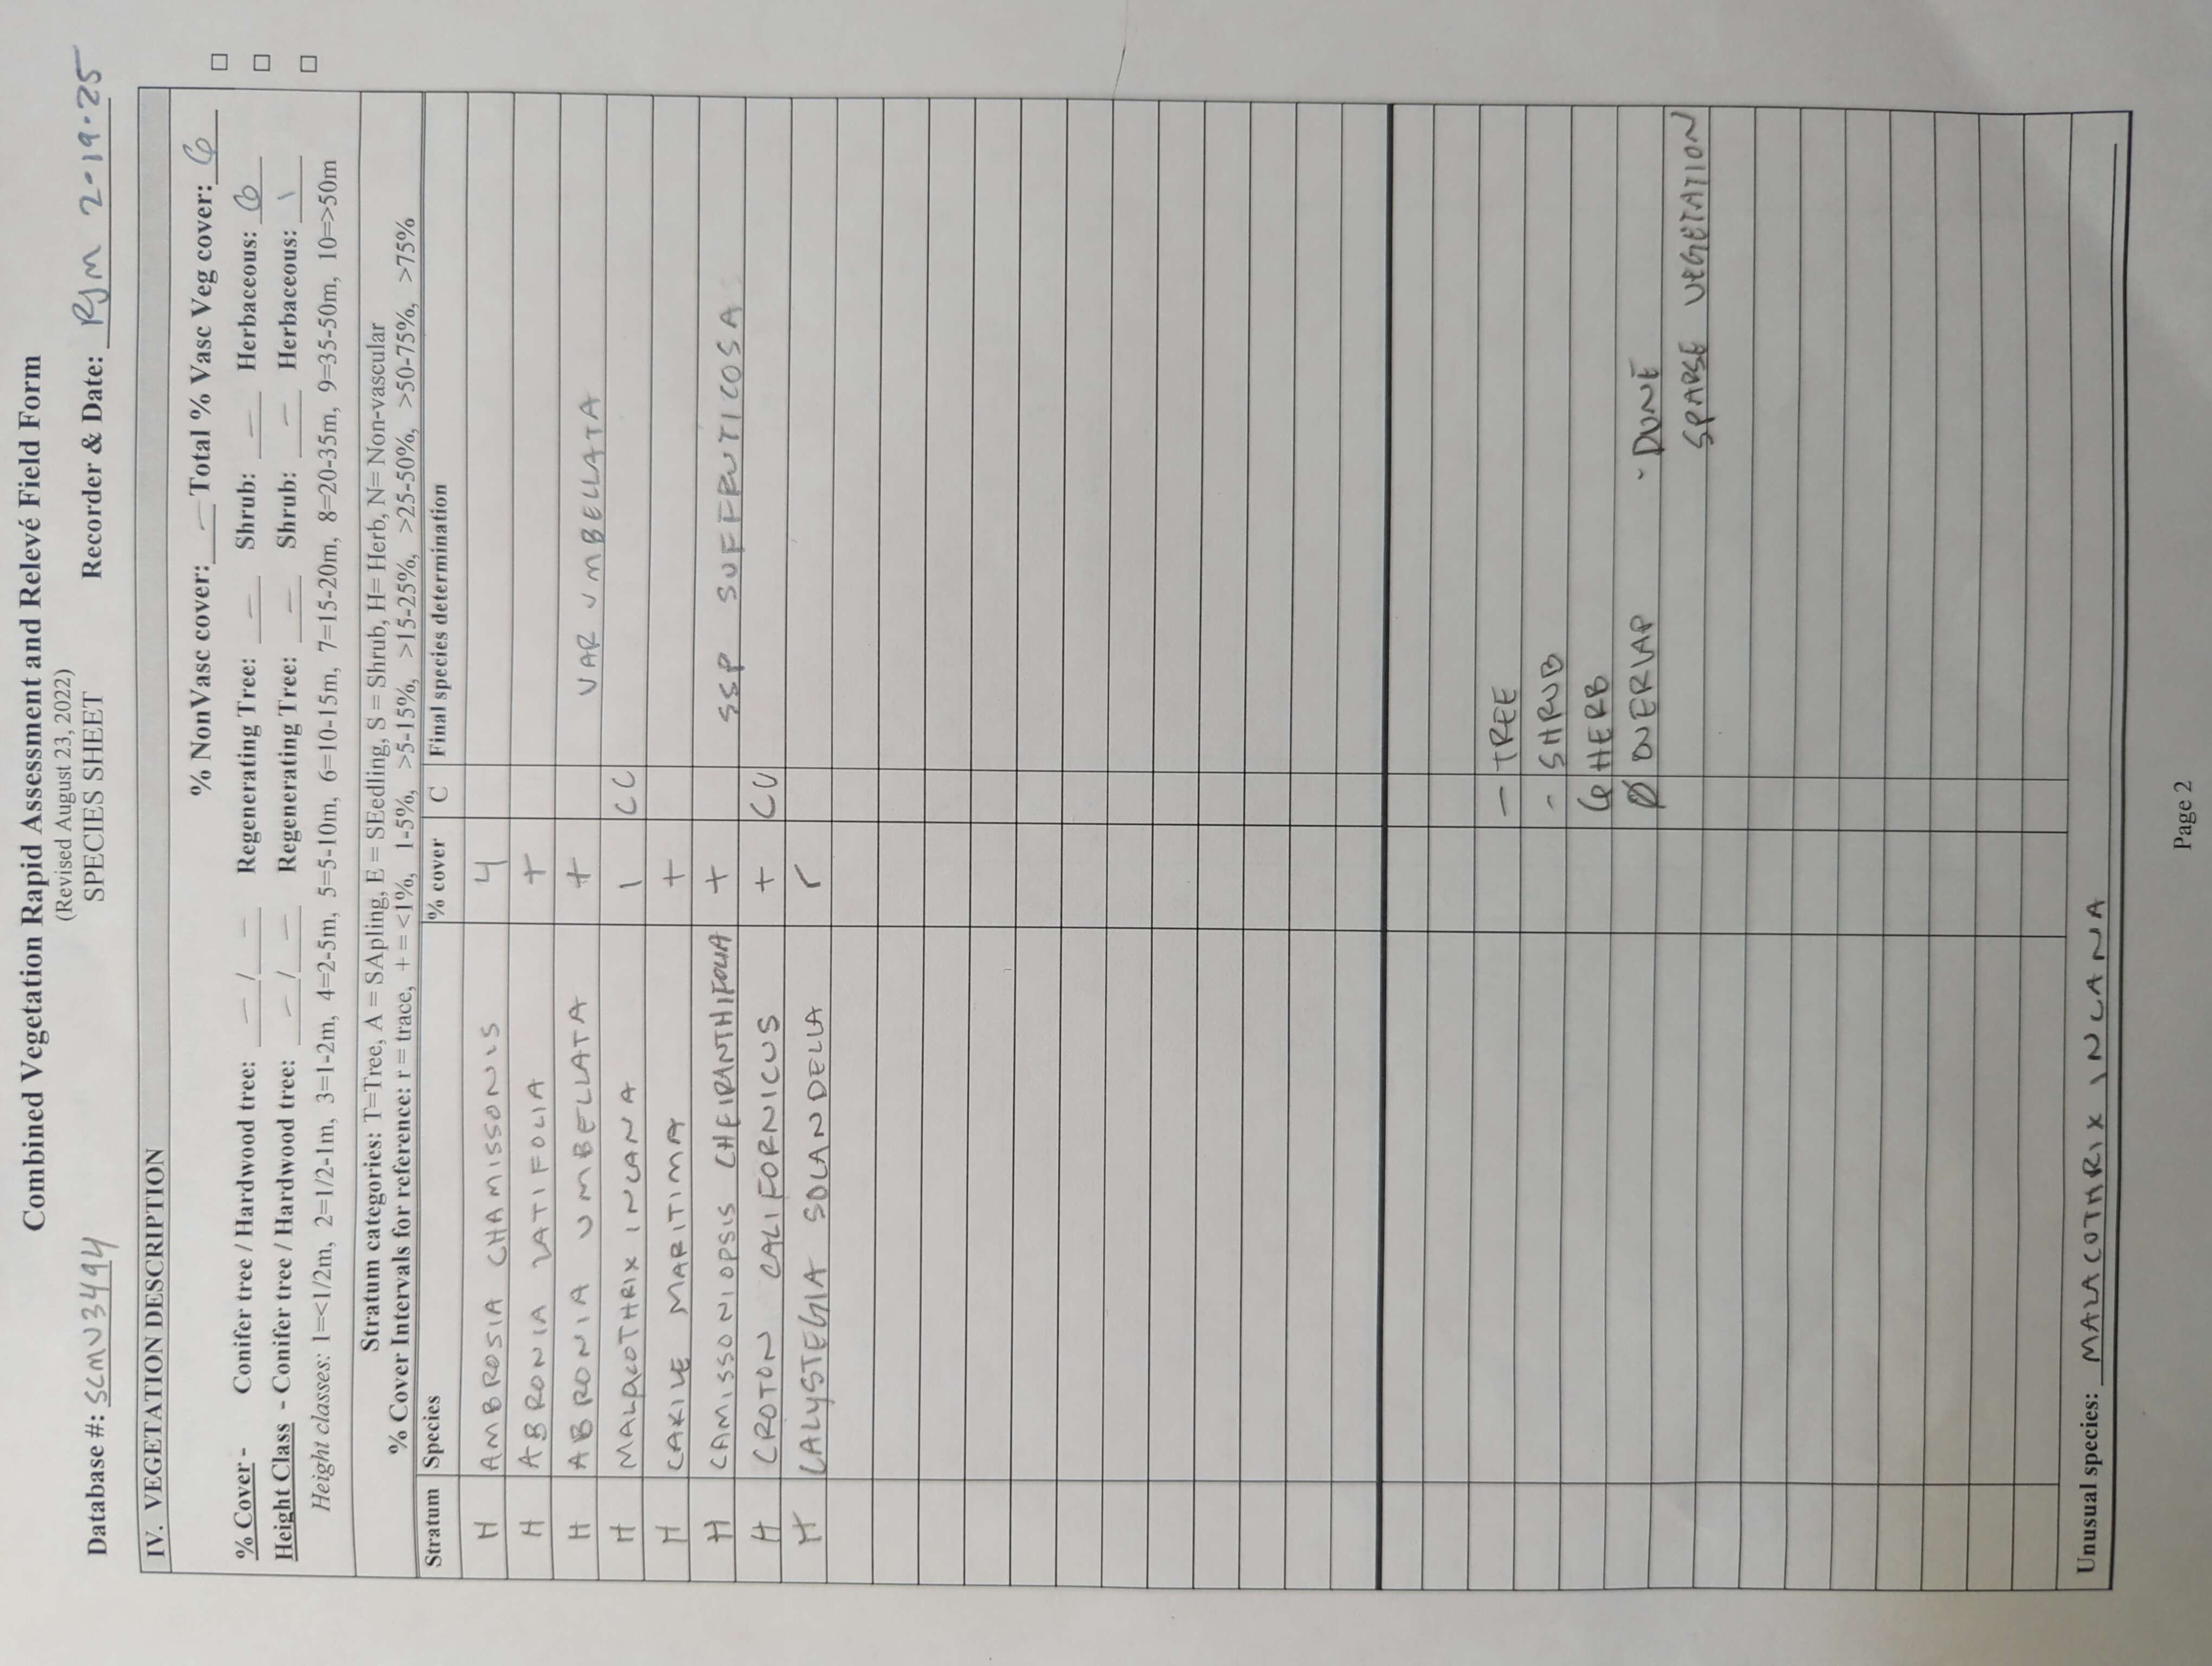 Combined Vegetation Rapid Assessment and Relevé Field Form
(Revised August 23, 2022)
SPECIES SHEET
Database #: SCMV3494 Recorder & Date: RJM 2-19-25
IV. VEGETATION DESCRIPTION
% NonVasc cover: — Total % Vasc Veg cover: 6 □
% Cover - Conifer tree / Hardwood tree: — / — Regenerating Tree: — Shrub: — Herbaceous: 6 □
Height Class - Conifer tree / Hardwood tree: — / — Regenerating Tree: — Shrub: — Herbaceous: 1 □
Height classes: 1=<1/2m, 2=1/2-1m, 3=1-2m, 4=2-5m, 5=5-10m, 6=10-15m, 7=15-20m, 8=20-35m, 9=35-50m, 10=>50m
Stratum categories: T=Tree, A = SApling, E = SEedling, S = Shrub, H= Herb, N= Non-vascular
% Cover Intervals for reference: r = trace, + = <1%, 1-5%, >5-15%, >15-25%, >25-50%, >50-75%, >75%
Stratum Species % cover C Final species determination
H AMBROSIA CHAMISSONIS 4
H ABRONIA LATIFOLIA +
H ABRONIA UMBELLATA + VAR UMBELLATA
H MALACOTHRIX INCANA 1 CC
H CAKILE MARITIMA +
H CAMISSONIOPSIS CHEIRANTHIFOLIA + SSP SUFFRUTICOSA
H CROTON CALIFORNICUS + CC
H CALYSTEGIA SOLANDELLA r
— TREE
- SHRUB
6 HERB
Ø OVERLAP · DUNE
SPARSE VEGETATION
Unusual species: MALACOTHRIX INCANA
Page 2